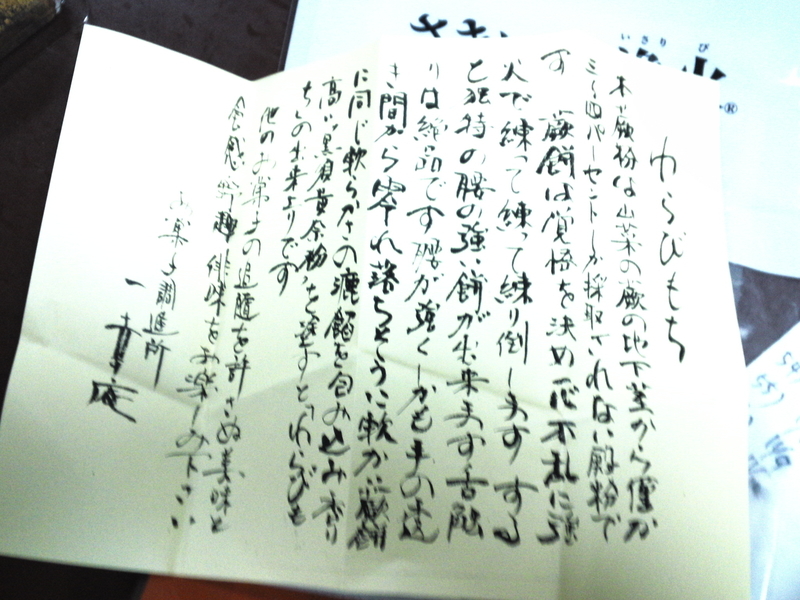 わらびもち
本わらび粉は山菜の蕨の地下茎から僅か
三〜四パーセントしか採取されない澱粉で
す 蕨餅は覚悟を決め一心不乱に強
火で練って練って練り倒します する
と独特の腰の強い餅が出来ます 舌触
りは絶品です 腰が強くしかも手の透
き間から零れ落ちそうに軟か 蕨餅
に同じ軟らかさの漉餡を包み込み 香り
高い黒須黄奈粉を塗すと「わらびも
ち」の出来上りです
他のお菓子の追随を許さぬ美味と
食感 野趣 俳味をお楽しみ下さい
お菓子調進所
一幸庵
いさり び
®